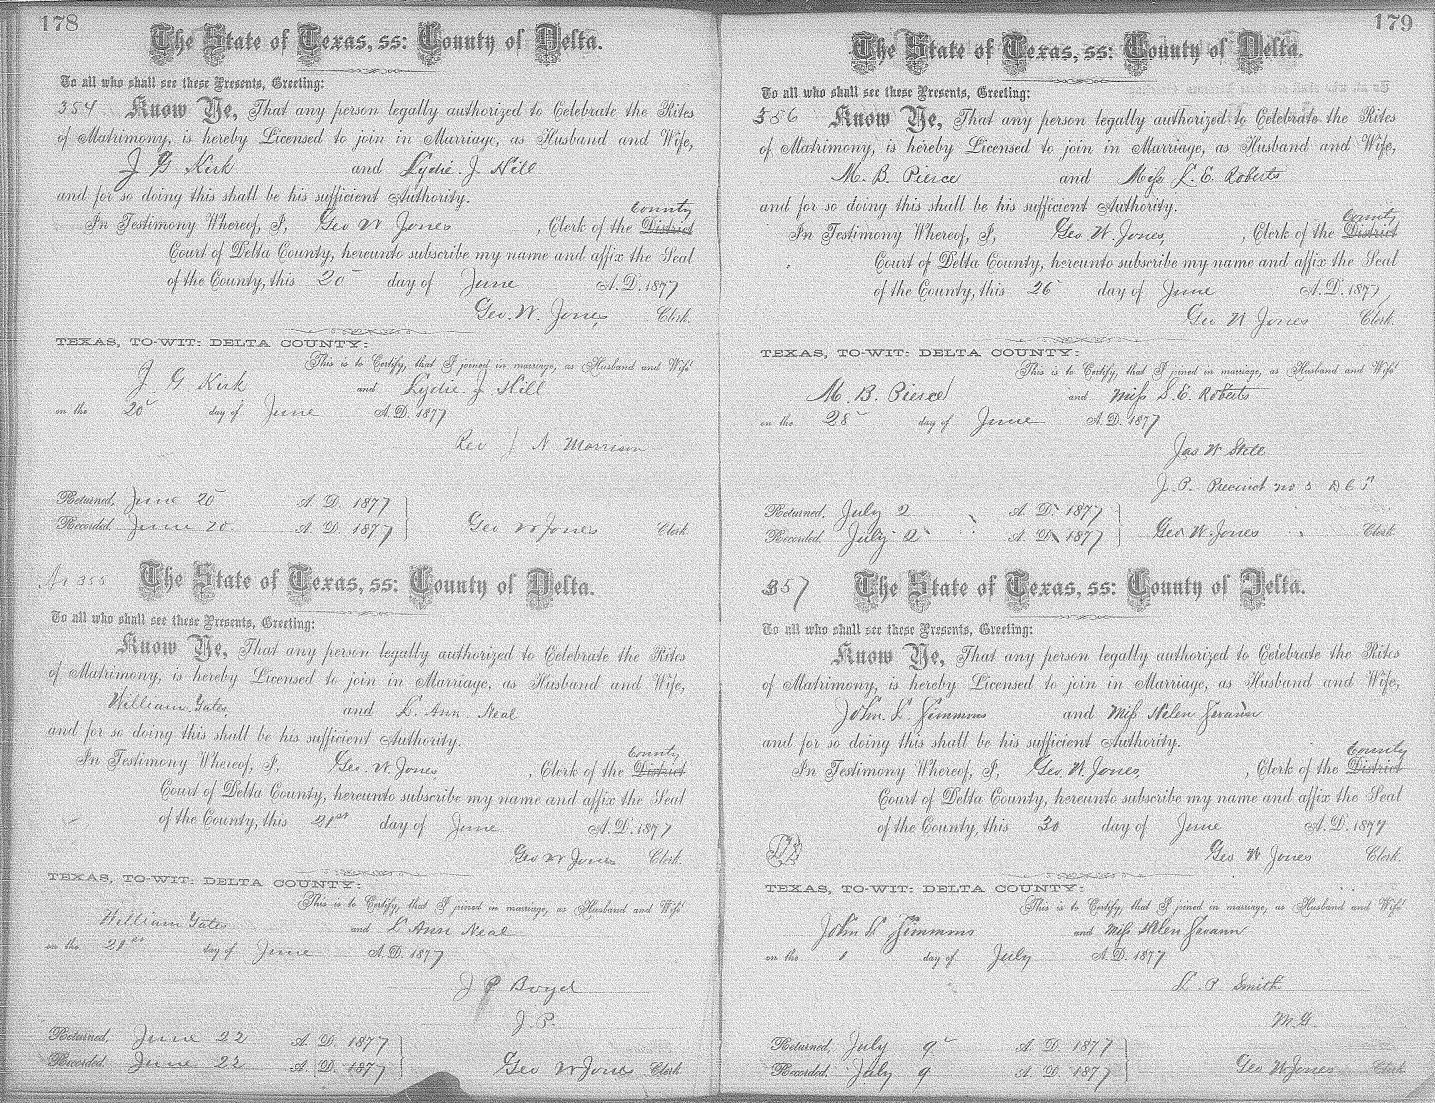 178
The State of Texas, ss: County of Delta.
To all who shall see these Presents, Greeting:
354 Know Ye, That any person legally authorized to Celebrate the Rites
of Matrimony, is hereby Licensed to join in Marriage, as Husband and Wife,
J G Kirk and Lydie. J Hill
and for so doing this shall be his sufficient Authority.
County
In Testimony Whereof, I, Geo W Jones, Clerk of the District
Court of Delta County, hereunto subscribe my name and affix the Seal
of the County, this 20 day of June A.D. 1877
Geo. W. Jones, Clerk.
TEXAS, TO-WIT: DELTA COUNTY:
This is to Certify, that I joined in marriage, as Husband and Wife
J. G Kirk and Lydie J Hill
on the 20 day of June A.D. 1877
Rev J N Morrison
Returned, June 20 A. D. 1877
Recorded, June 20 A. D. 1877 Geo W Jones Clerk
No 355 The State of Texas, ss: County of Delta.
To all who shall see these Presents, Greeting:
Know Ye, That any person legally authorized to Celebrate the Rites
of Matrimony, is hereby Licensed to join in Marriage, as Husband and Wife,
William Gates, and L. Ann Neal
and for so doing this shall be his sufficient Authority.
County
In Testimony Whereof, I, Geo. W. Jones, Clerk of the District
Court of Delta County, hereunto subscribe my name and affix the Seal
of the County, this 21st day of June A.D. 1877
Geo W Jones Clerk.
TEXAS, TO-WIT: DELTA COUNTY:
This is to Certify, that I joined in marriage, as Husband and Wife
William Gates and L Ann Neal
on the 21st day of June A.D. 1877
J P Boyd
J. P.
Returned, June 22 A. D. 1877
Recorded, June 22 A. D. 1877 Geo W Jones Clerk
179
The State of Texas, ss: County of Delta.
To all who shall see these Presents, Greeting:
356 Know Ye, That any person legally authorized to Celebrate the Rites
of Matrimony, is hereby Licensed to join in Marriage, as Husband and Wife,
M. B. Pierce and Miss L. E. Roberts
and for so doing this shall be his sufficient Authority.
County
In Testimony Whereof, I, Geo. W. Jones, Clerk of the District
Court of Delta County, hereunto subscribe my name and affix the Seal
of the County, this 26 day of June A.D. 1877
Geo W Jones Clerk.
TEXAS, TO-WIT: DELTA COUNTY:
This is to Certify, that I joined in marriage, as Husband and Wife
M. B. Pierce and Miss S. E. Roberts
on the 28 day of June A.D. 1877
Jas W
J. P. Precinct no 5
Returned, July 2 A. D. 1877
Recorded. July 2 A. D. 1877 Geo W. Jones Clerk
357 The State of Texas, ss: County of Delta.
To all who shall see these Presents, Greeting:
Know Ye, That any person legally authorized to Celebrate the Rites
of Matrimony, is hereby Licensed to join in Marriage, as Husband and Wife,
John L. Simmons and Miss Helen
and for so doing this shall be his sufficient Authority.
County
In Testimony Whereof, I, Geo. W. Jones, Clerk of the District
Court of Delta County, hereunto subscribe my name and affix the Seal
of the County, this 30 day of June A.D. 1877
Geo W Jones Clerk.
TEXAS, TO-WIT: DELTA COUNTY:
This is to Certify, that I joined in marriage, as Husband and Wife
John L Simmons and Miss Helen
on the 1 day of July A.D. 1877
L. P Smith
M. G.
Returned, July 9 A. D. 1877
Recorded. July 9 A. D 1877 Geo W Jones Clerk